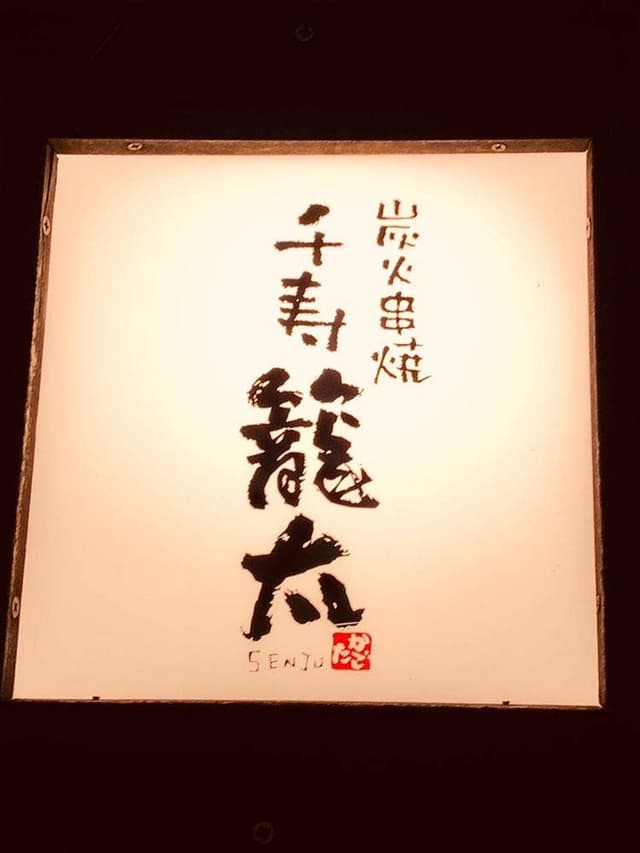 炭火串焼
千寿
籠太
SENJU
かごた